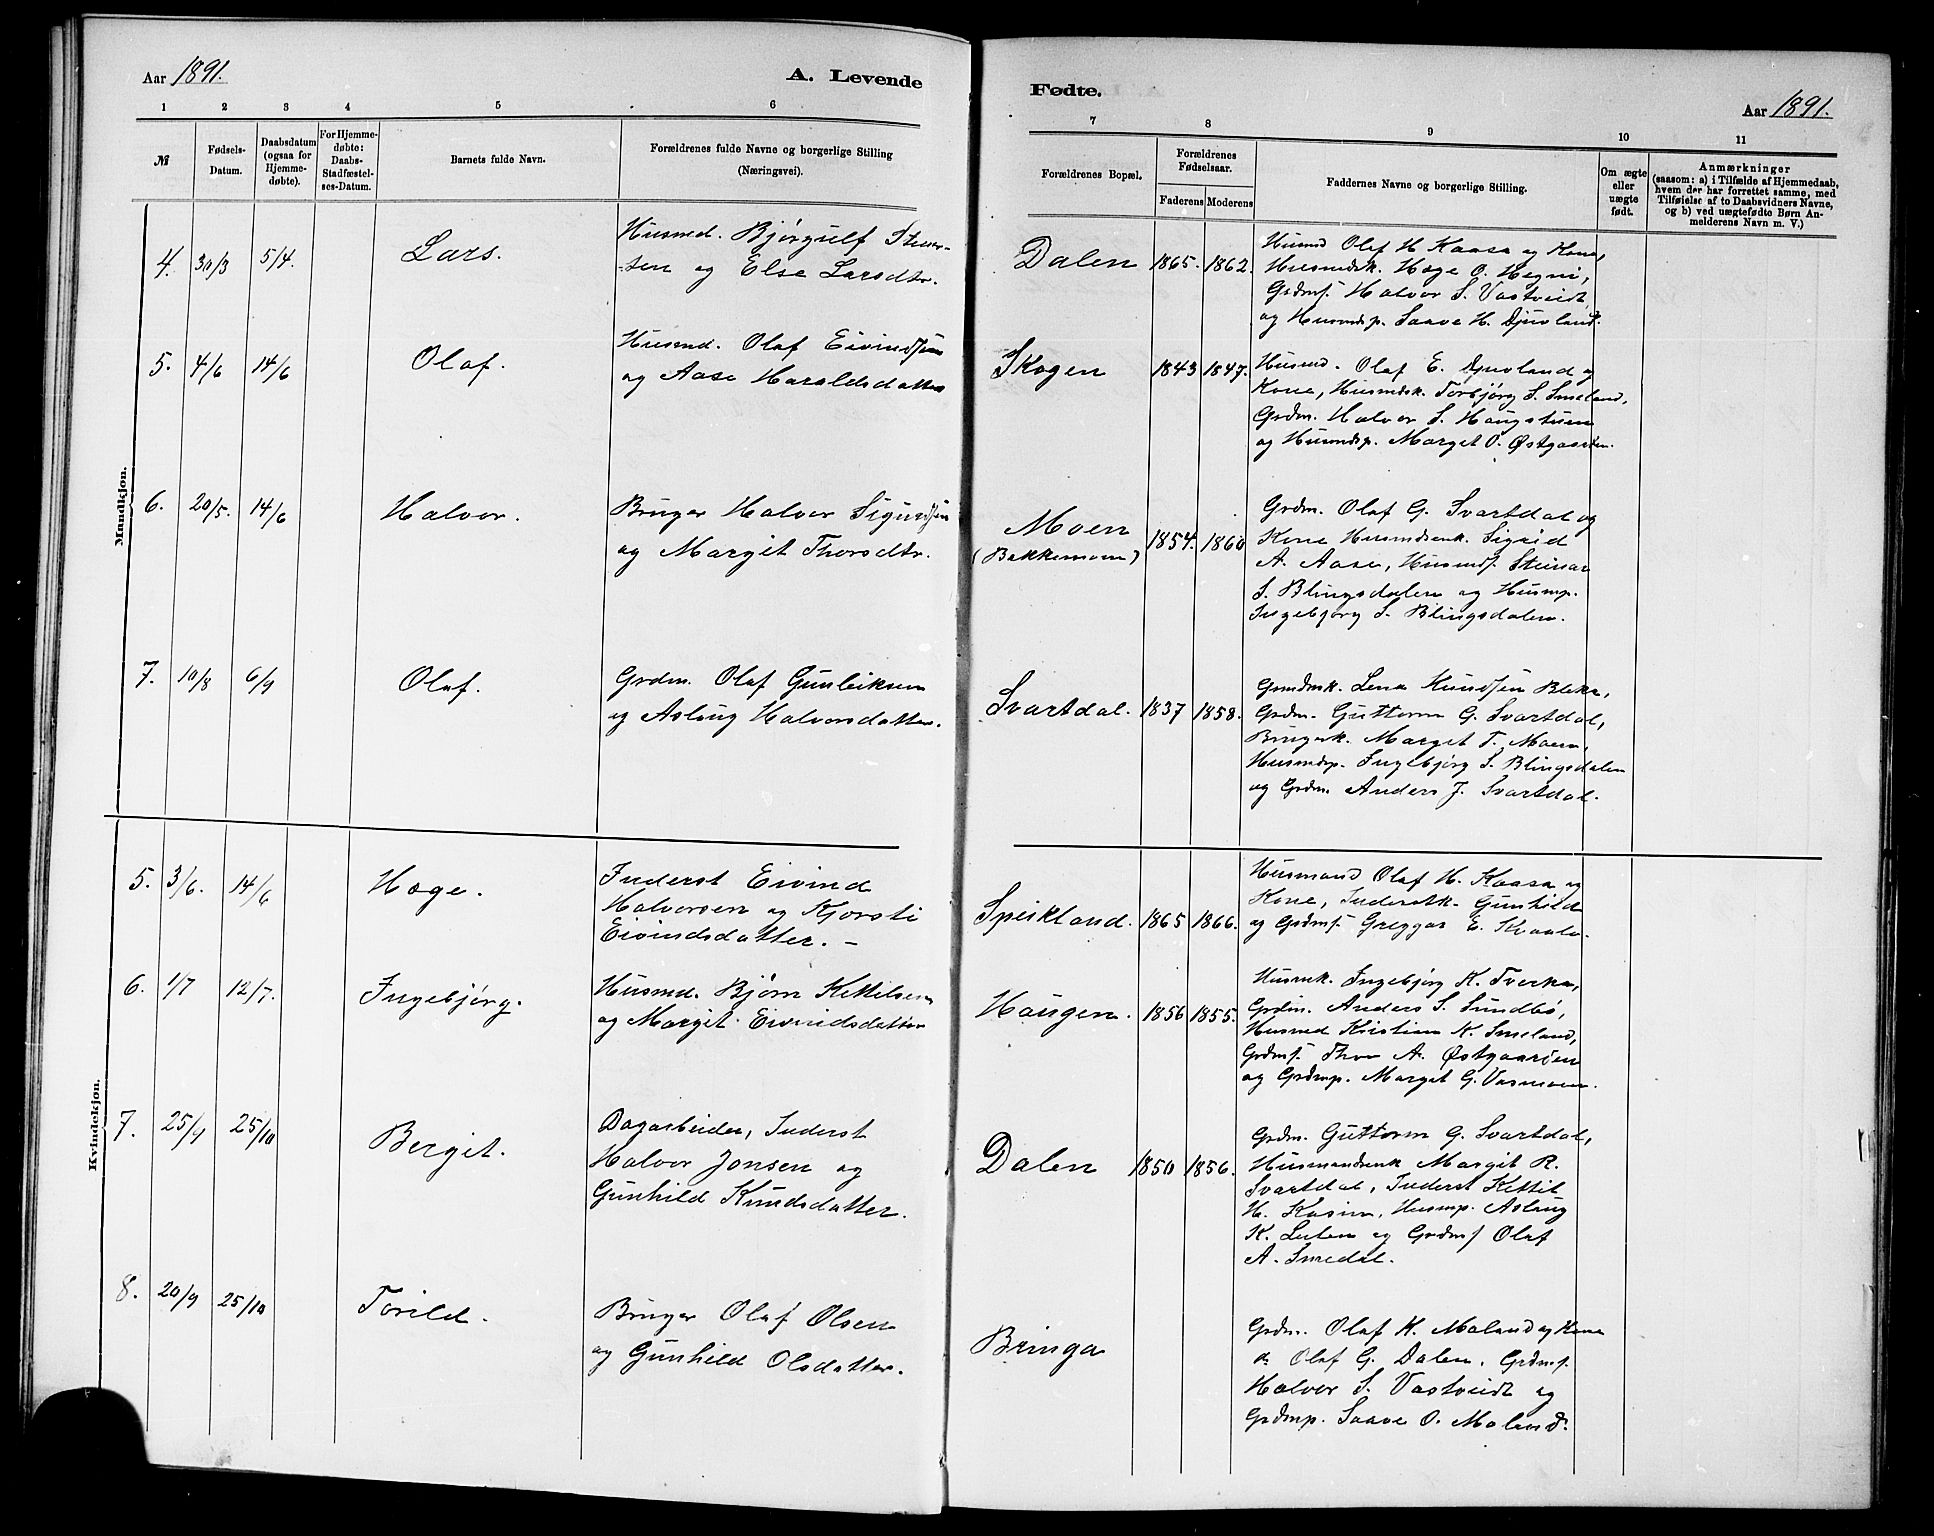 Aar 1891.
A. Levende
1 2 3 4 5 6
№
Fødsels-
Datum.
Daabsdatum
(ogsaa for
Hjemme-
døbte).
For Hjemme-
døbte:
Daabs-
Stadfæstel-
ses-Datum.
Barnets fulde Navn.
Forældrenes fulde Navne og borgerlige Stilling
(Næringsvei).
Mandkjøn.
4. 30/3 5/4. Lars.
Husmd. Bjørgulf Stener-
sen og Else Larsdtr.
5. 4/6 14/6 Olaf.
Husmd. Olaf Eivindsen
og Aase Haraldsdatter
6. 20/5. 14/6 Halvor.
Bruger Halvor Sigurdsen
og Margit Thorsdtr.
7. 10/8 6/9 Olaf.
Grdm. Olaf Gunleiksen
og Aslaug Halvorsdatter.
Kvindekjøn.
5. 3/6. 14/6 Hæge.
Inderst Eivind
Halvorsen og Kjersti
Eivindsdatter. -
6. 1/7 12/7. Ingebjørg.
Husmd. Bjørn Kettilsen
og Margit Eivindsdatter
7. 25/9 25/10 Bergit.
Dagarbeider, Inderst
Halvor Jonsen og
Gunhild Knudsdatter.
8. 20/9 25/10 Torild.
Bruger Olaf Olsen
og Gunhild Olsdatter.
Fødte.
Aar 1891.
7 8 9 10 11
Forældrenes Bopæl.
Forældrenes
Fødselsaar.
Faderens Moderens
Faddernes Navne og borgerlige Stilling.
Om ægte
eller
uægte
født.
Anmærkninger
(saasom: a) i Tilfælde af Hjemmedaab,
hvem der har forrettet samme, med
Tilføielse af to Daabsvidners Navne,
og b) ved uægtefødte Børn An-
melderens Navn m. V.)
Dalen 1865. 1862.
Husmd Olaf H. Kaasa og Kone,
Husmdsk. Hæge O. Hegni,
Grdmf. Halvor S. Vastveidt
og Husmdsp. Saave H. Djuvland.
Skogen 1843 1847.
Husmd. Olaf E. Djuvland og
Kone, Husmdsk. Torbjørg S. Smeland,
Grdm. Halvor S. Haugstuen
og Husmdsp. Margit O. Østgaarden.
Moen
(Bakkemoen) 1854. 1860
Grdm. Olaf G. Svartdal og
Kone Husmdsenk. Sigrid
A. Aase, Husmdf. Steinar
S. Blingsdalen og Husmp.
Ingebjørg S. Blingsdalen.
Svartdal. 1837 1858.
Lena Knudsen Bleka,
Grdm. Guttorm G. Svartdal,
Brugerk. Marget T. Moen,
Husmdsp. Ingebjørg S. Blingsdalen
og Grdm. Anders J. Svartdal.
Speikland. 1865 1866.
Husmand Olaf H. Kaasa og
Kone, Inderstk. Gunhild
og Grdmf. Greggar E. Kvaale.
Haugen. 1856 1855.
Ingebjørg K. Tverka,
Grdm. Anders S. Sundbø,
Husmd Kristian K. Smeland,
Grdmf. Thor A. Østgaarden
og Grdmp. Marget G. Vasmoen.
Dalen 1850 1856.
Grdm. Guttorm G. Svartdal,
Husmandsenk Margit R.
Svartdal, Inderst Kettil
H. Kasin, Husmp. Aslaug
K. Lulen og Grdmf Olaf
A. Smedal.
Bringa
Grdm. Olaf K. Moland og Kone
Olaf G. Dalen, Grdmf.
Halvor S. Vastveidt og
Grdmp. Saave O. Moland.